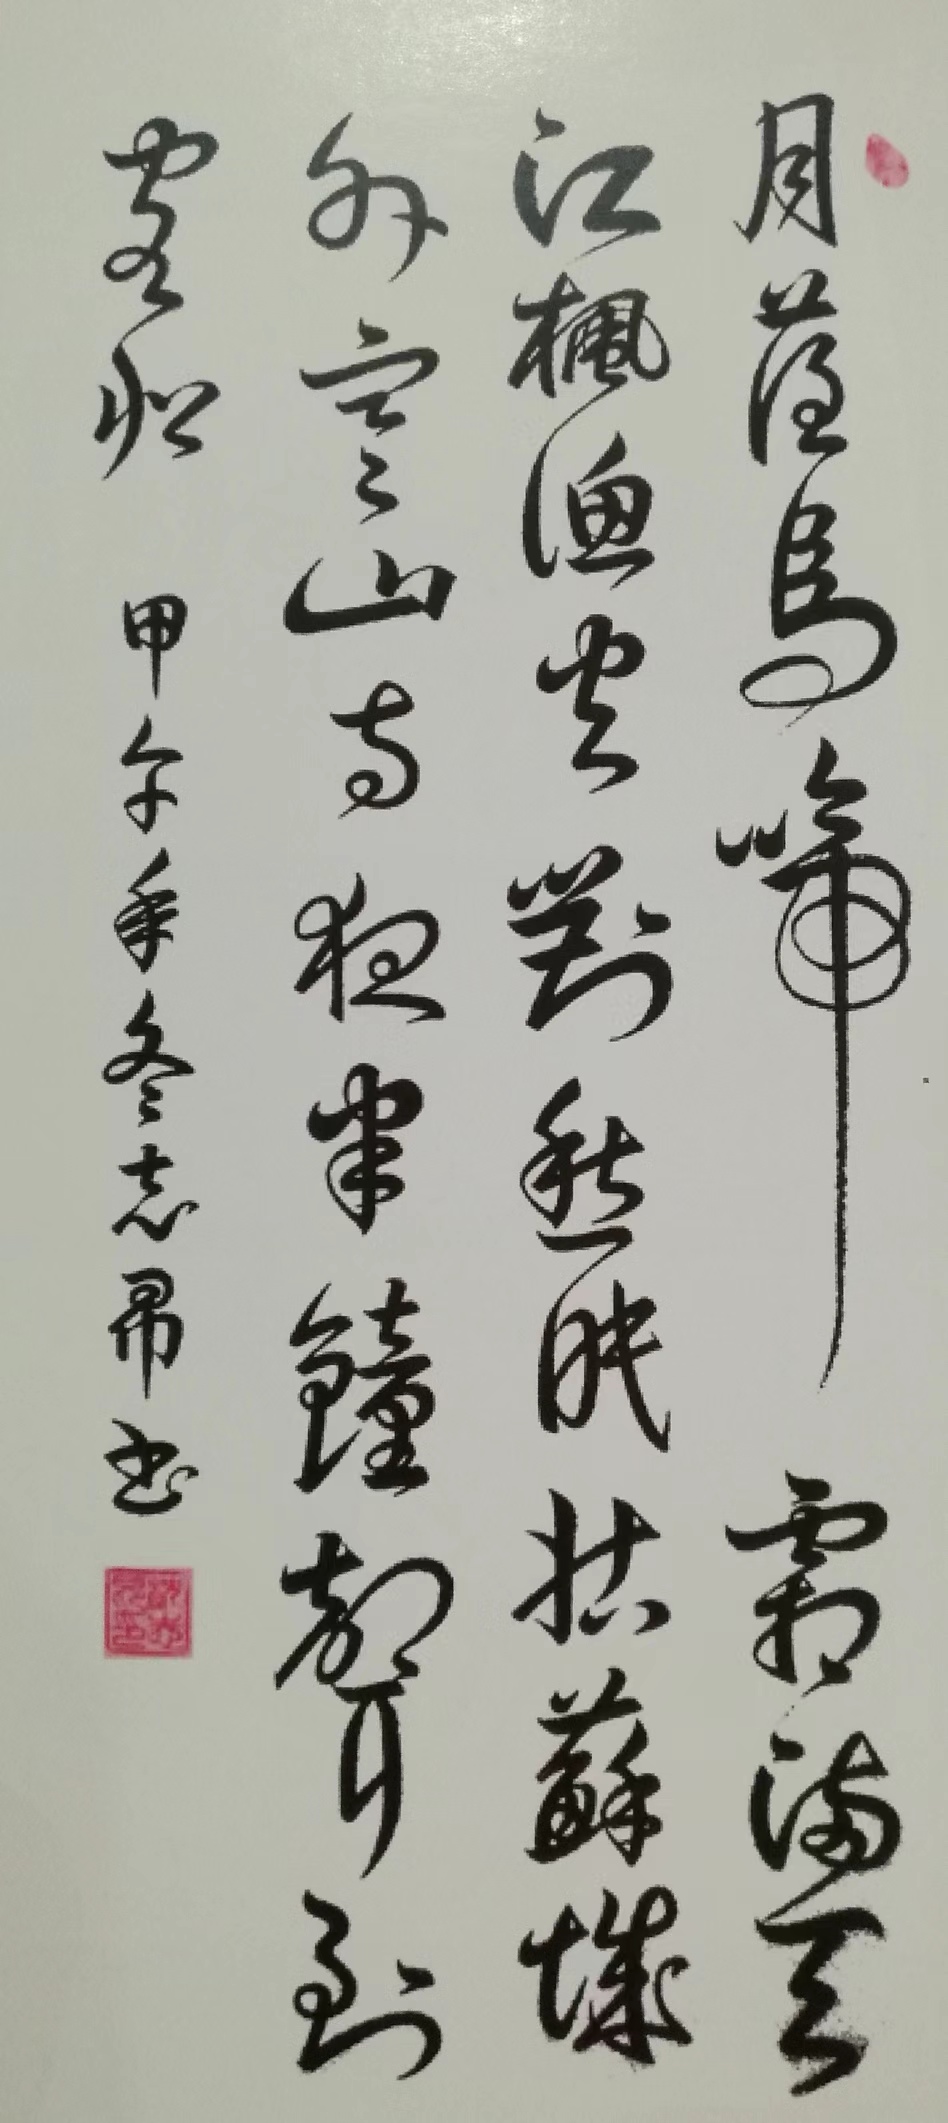 月落烏啼霜滿天
江楓漁火對愁眠姑蘇城
外寒山寺夜半鐘聲到
客船 甲午年冬志书